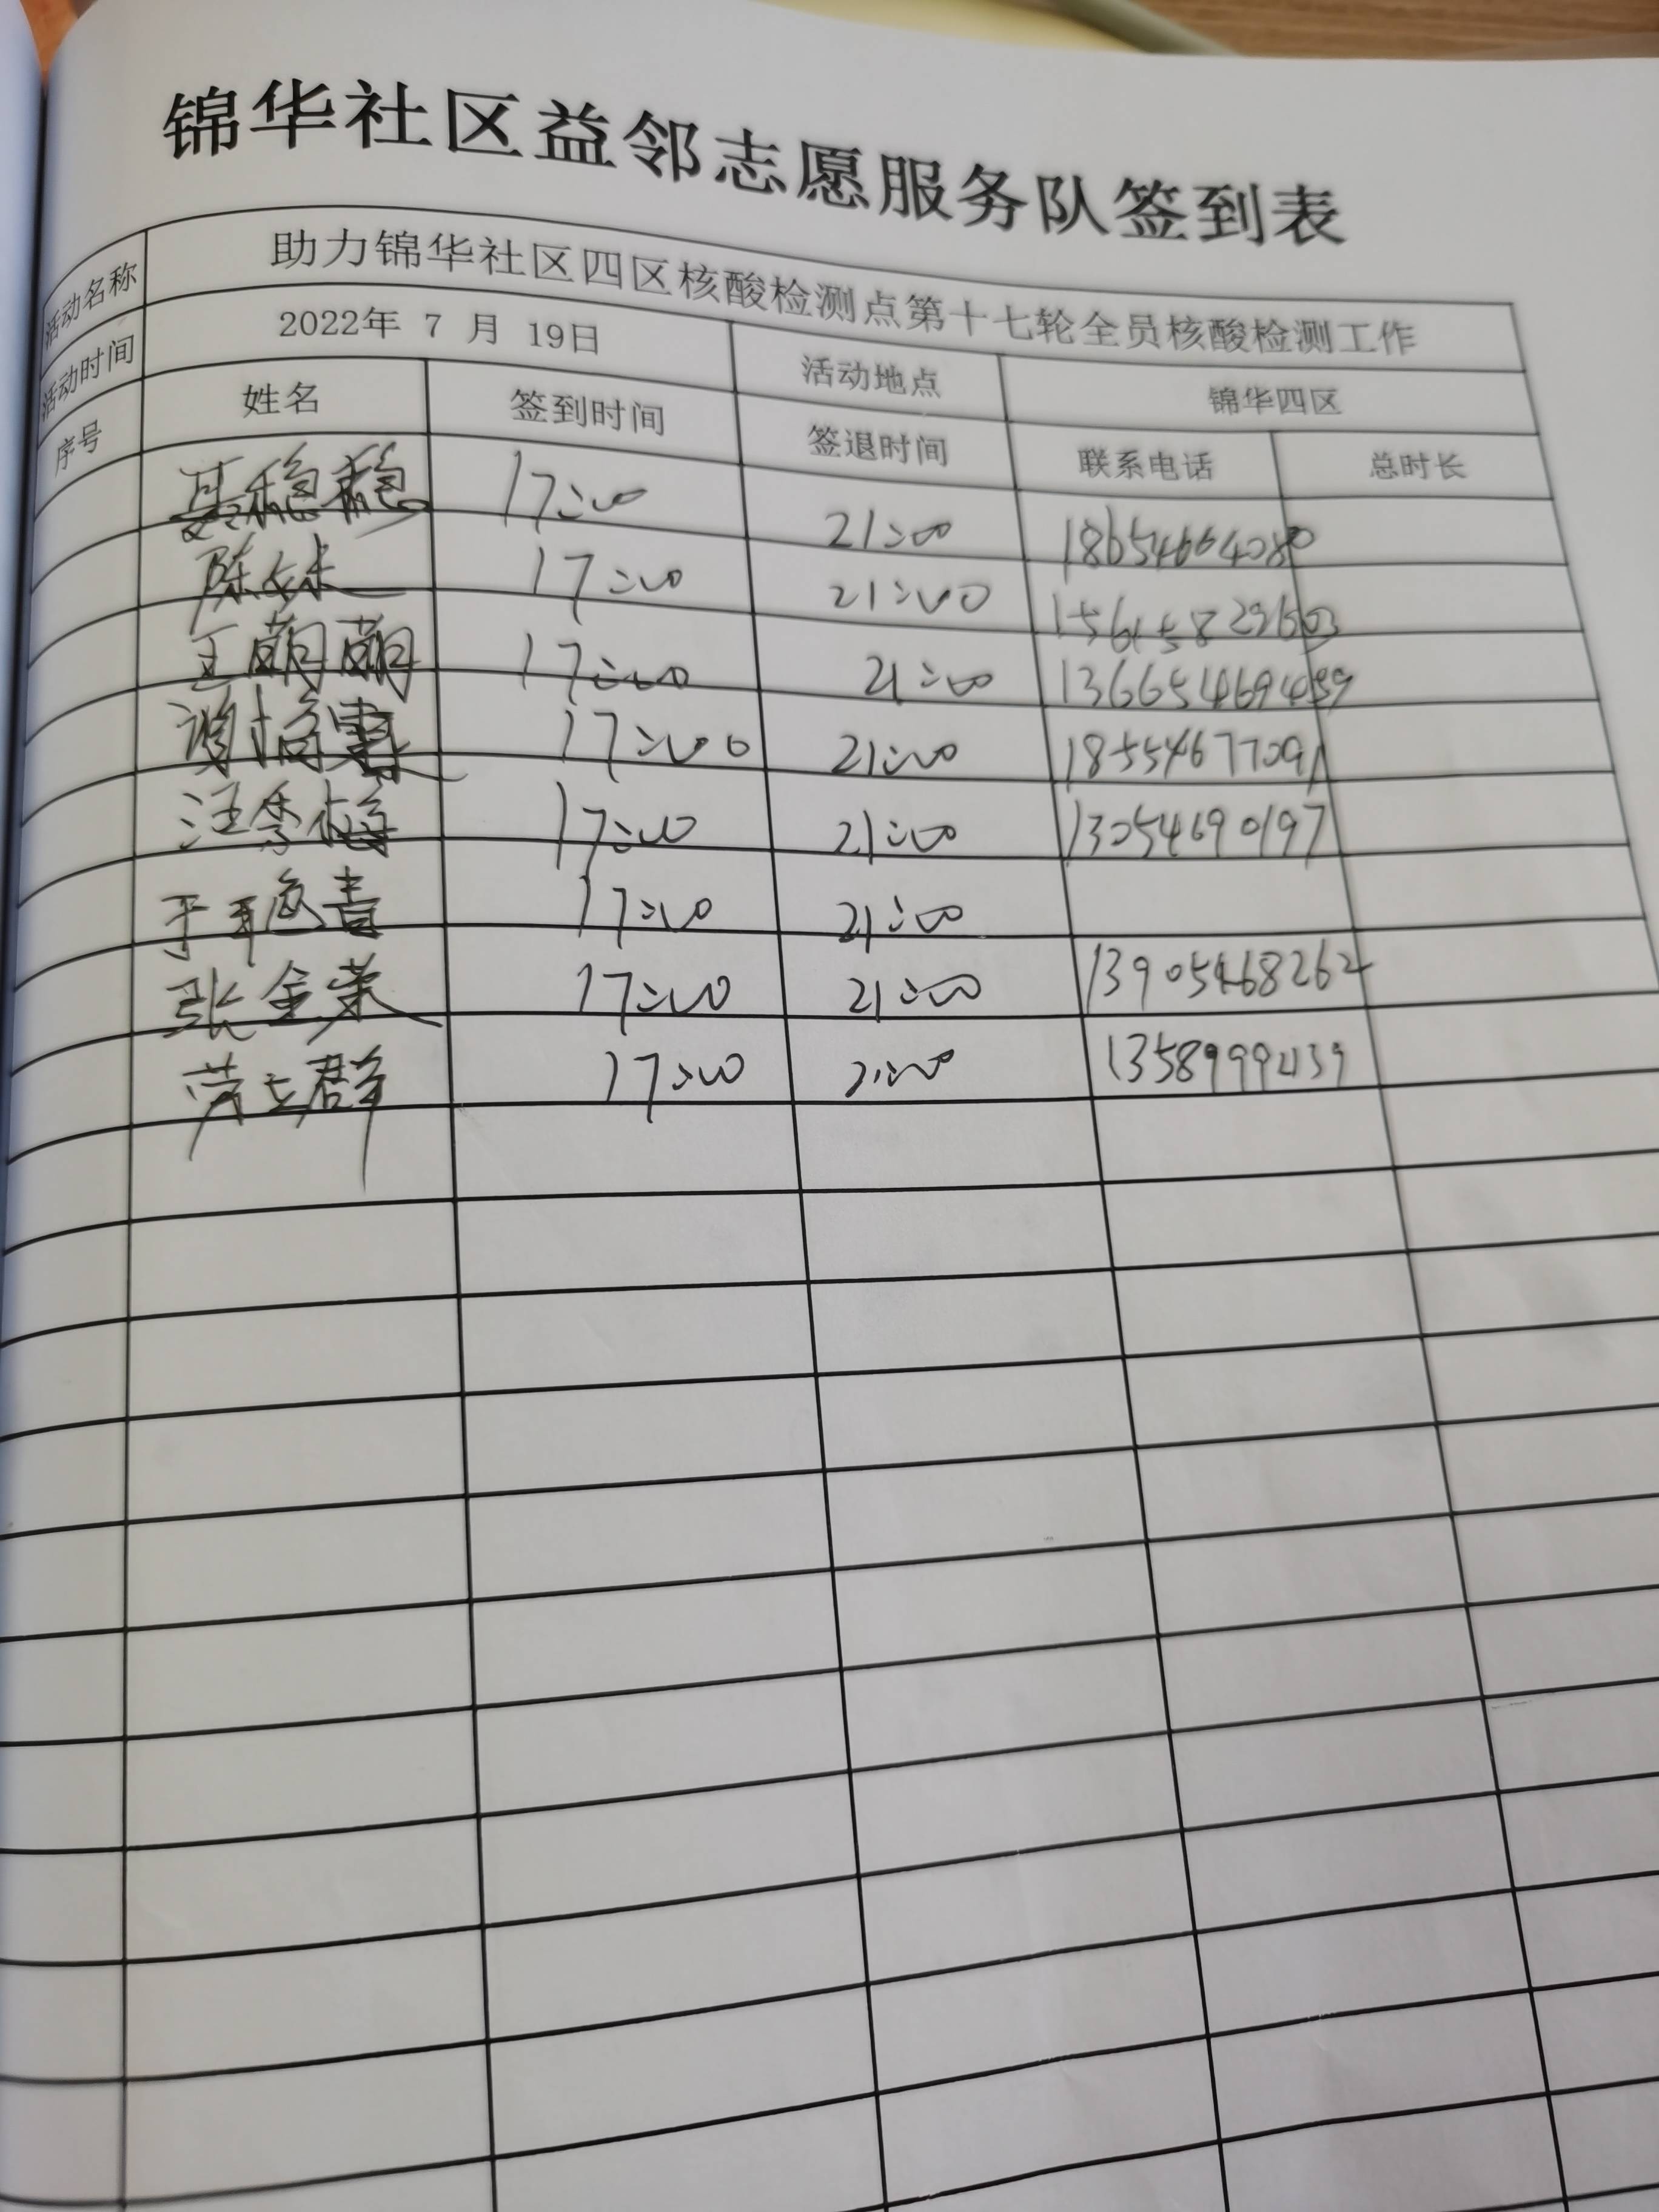 锦华社区益邻志愿服务队签到表
活动名称 助力锦华社区四区核酸检测点第十七轮全员核酸检测工作
活动时间 2022年 7 月 19日 活动地点 锦华四区
序号 姓名 签到时间 签退时间 联系电话 总时长
綦稳稳 17:00 21:00 18654664080
陈 17:00 21:00
王萌萌 17:00 21:00
17:00 21:00 18554677091
汪秀梅 17:00 21:00 13054690197
17:00 21:00
张金荣 17:00 21:00 13905468262
劳立群 17:00 21:00